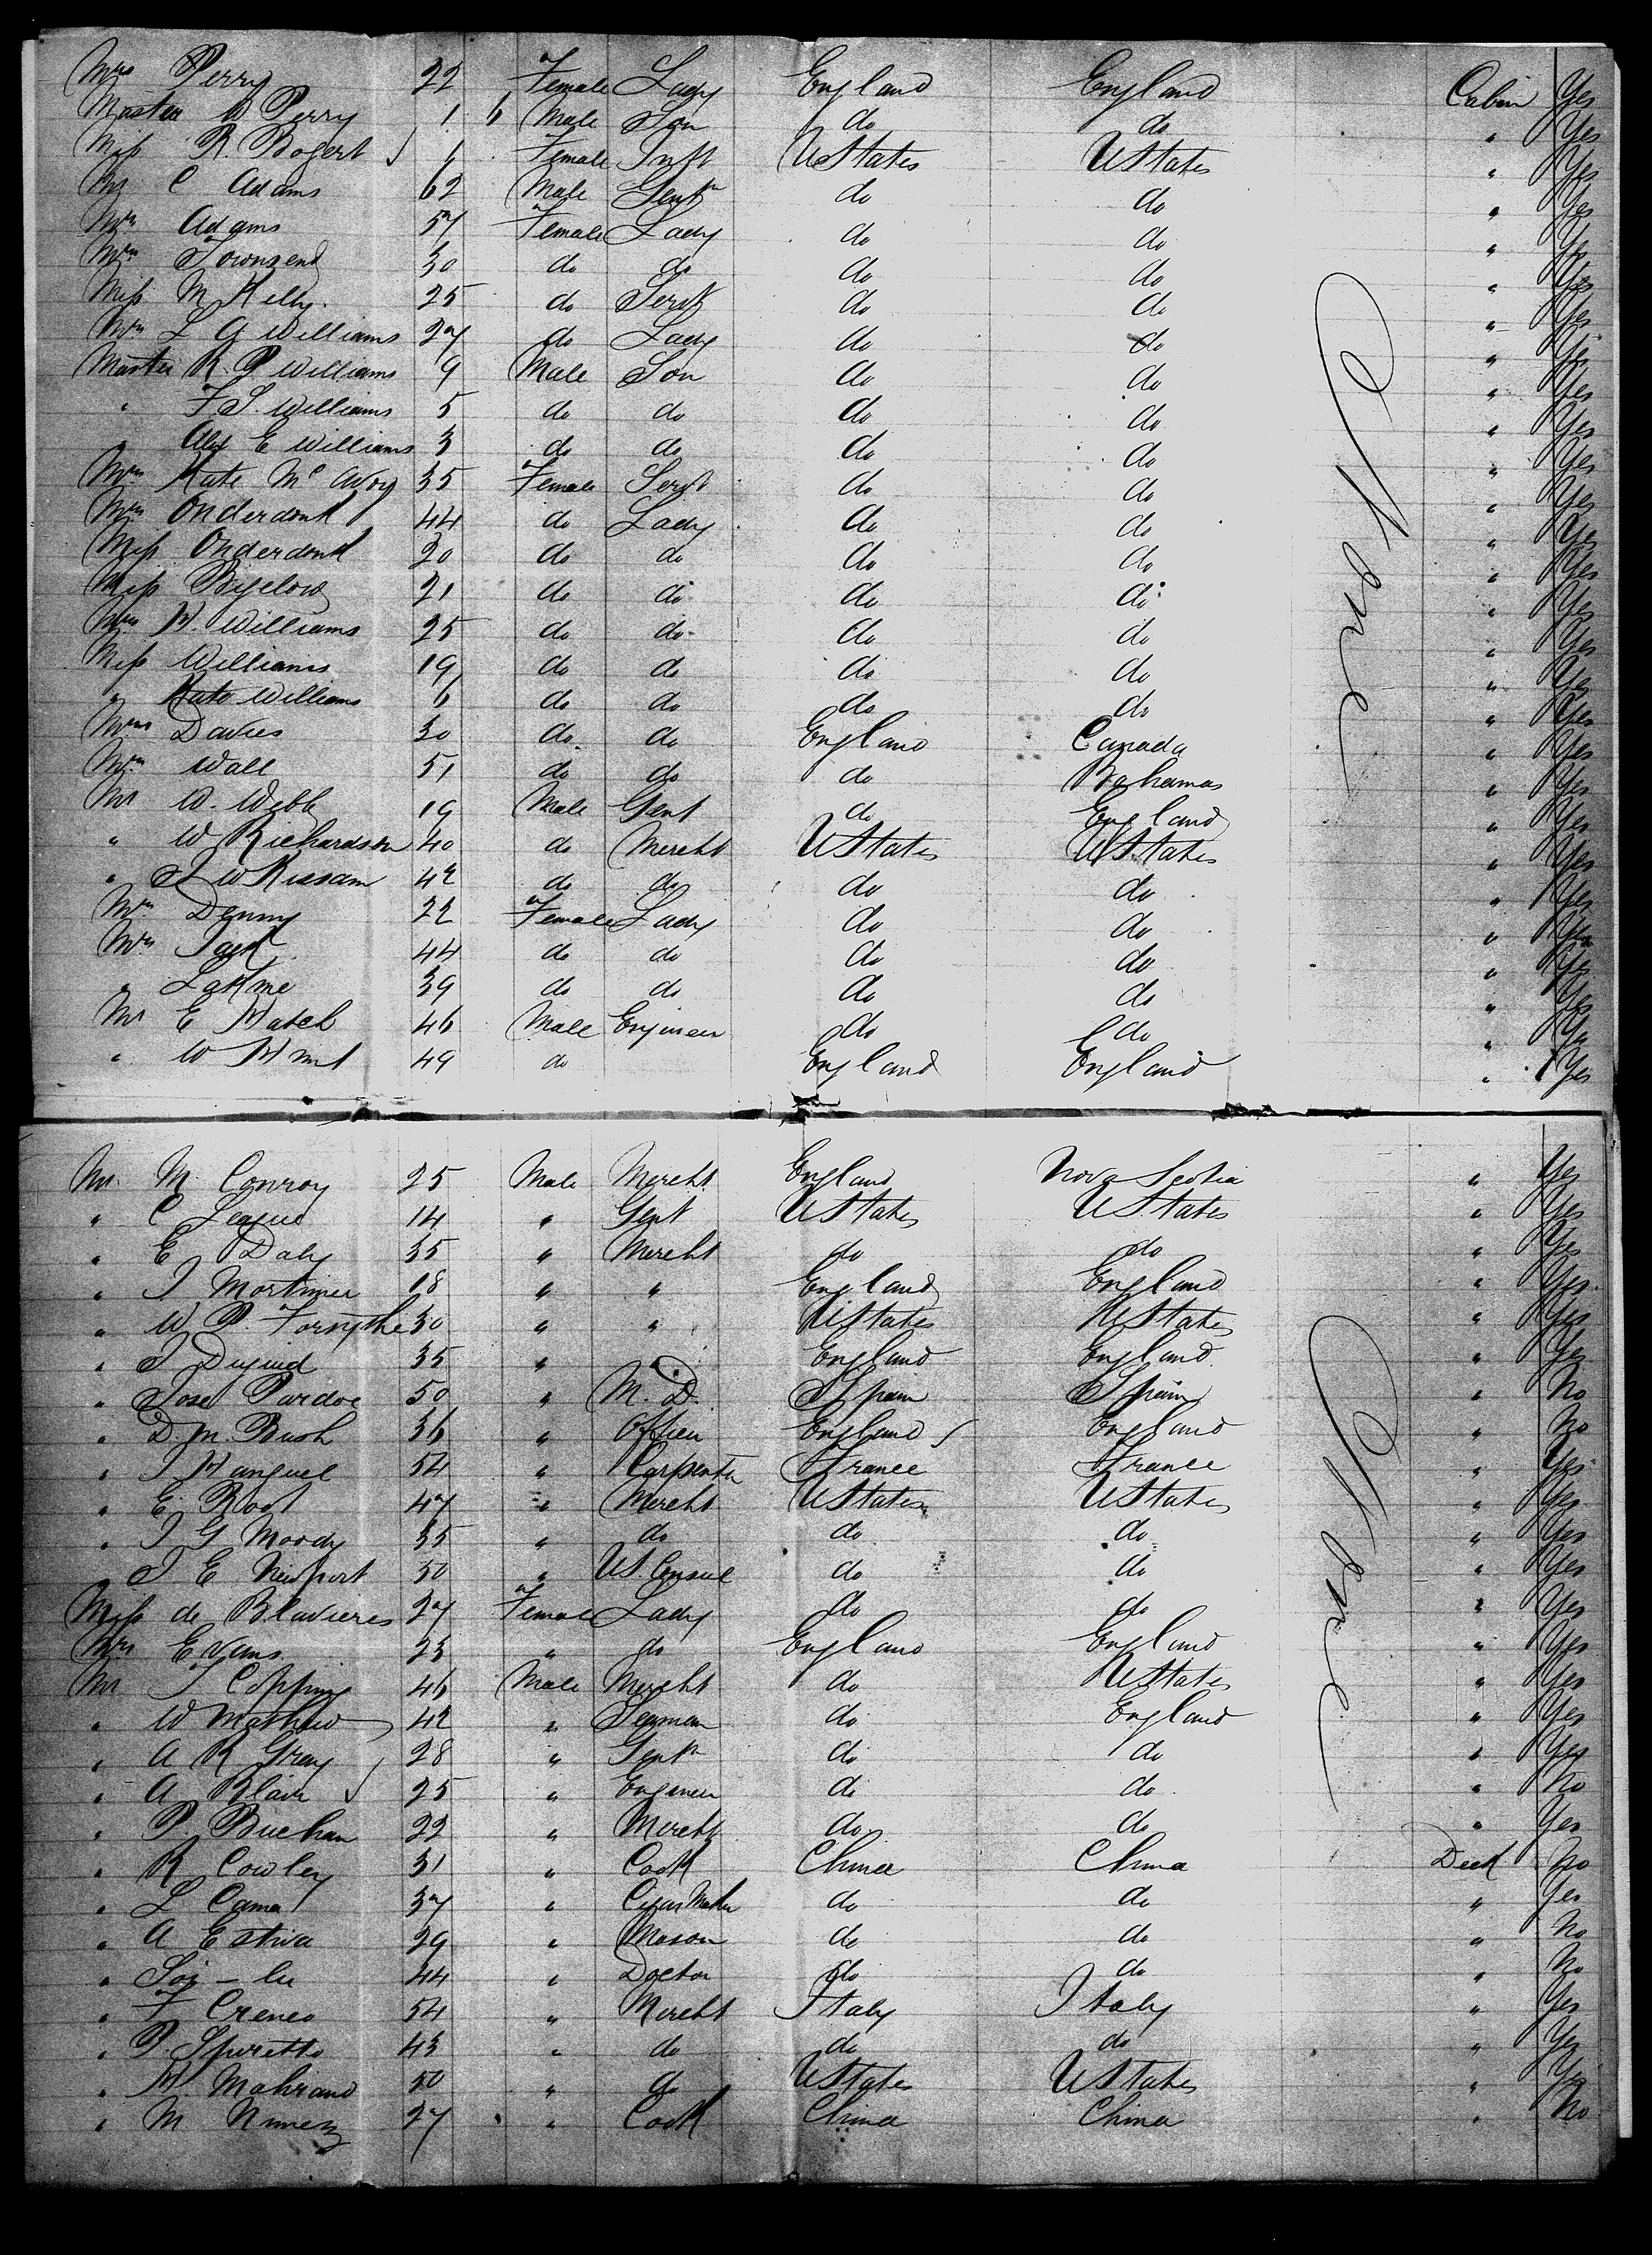 Mrs Perry 22 Female Lady England England Cabin Yes
Master W Perry 1 6 Male Son do do " Yes
Miss R. Bogert 6 Female Inft UStates UStates " Yes
Mr C Adams 62 Male Gentn do do " Yes
Mrs Adams 57 Female Lady do do " Yes
Mrs Townsend 30 do do do do " Yes
Miss M Kelly. 25 do Servt do do " Yes
Mrs L A Williams 27 do Lady do do " Yes
Master R. P Williams 9 Male Son do do " Yes
" F. S. Williams 5 do do do do " Yes
" Alex E Williams 3 do do do do " Yes
Mrs Kate Mc Avoy 35 Female Servt do do " Yes
Mrs Onderdonk 44 do Lady do do " Yes
Miss Onderdonk 20 do do do do " Yes
Miss Bigelow 21 do do do do " Yes
Mrs H. Williams 25 do do do do " Yes
Miss Williams 19 do do do do " Yes
" Kate Williams 6 do do do do " Yes
Mrs Davies 30 do do England Canada " Yes
Mrs Wall 51 do do do Bahamas " Yes
Mr W. Webb 19 Male Gent do England " Yes
" W Richardson 40 do Mercht UStates UStates " Yes
" J W Kissam 42 do do do do " Yes
Mrs Denny 22 Female Lady do do " Yes
Mrs Jack 44 do do do do " Yes
" 39 do do do do " Yes
Mr E Hatch 46 Male Engineer do do " Yes
" W Hunt 49 do England England " Yes
None
Mr. M. Conroy 25 Male Mercht England Nova Scotia " Yes
" C League 14 " Gent UStates UStates " Yes
" E Daly 35 " Mercht do do " Yes
" J Mortimer 18 " " England England " Yes
" W P. Forsythe 30 " " UStates UStates " Yes
" J Duguid 35 " " England England " Yes
" Jose Pardoe 50 " M. D. Spain Spain " No
" D. M. Bush 36 " Officer England England " No
" J Hanguel 54 " Carpenter France France " Yes
" E. Root 47 " Mercht UStates UStates " Yes
" J G Moody 35 " do do do " Yes
" J E Newport 30 " US Consul do do " Yes
Miss de Blavieres 27 Female Lady do do " Yes
Mrs Evans 23 " do England England " Yes
Mr J Copping 46 Male Mercht do UStates " Yes
" W Mathew 42 " Seaman do England " Yes
" A R Gray 28 " Gentn do do " Yes
" A Blair 25 " Engineer do do " No
" P Buchan 22 " Mercht do do " Yes
" R Cowley 31 " Cook China China Deck No
" L Cama 37 " Cigar Maker do do " Yes
" A Estiva 29 " Mason do do " No
" Soi - lu 44 " Doctor do do " No
" F Creneo 54 " Mercht Italy Italy " Yes
" P. Spuretto 43 " do do do " Yes
" H. Mahrand 50 " do UStates UStates " Yes
" M. Nunez 27 " Cook China China " No
None